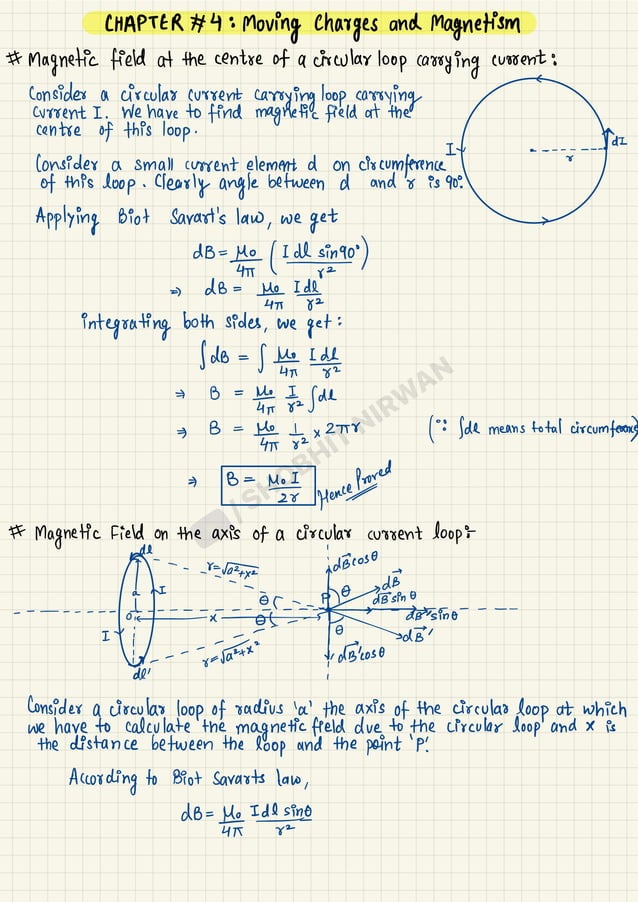 CHAPTER #4: Moving Charges and Magnetism
# Magnetic field at the centre of a circular loop carrying current:
Consider a circular current carrying loop carrying
current I. We have to find magnetic field at the
centre of this loop.
I
r
dI
Consider a small current element d on circumference
of this loop. Clearly angle between d and r is 90°.
Applying Biot Savart's law, we get
dB = μ₀/4π (I dl sin90°/r²)
⇒ dB = μ₀/4π I dl/r²
integrating both sides, we get:
∫dB = ∫ μ₀/4π I dl/r²
⇒ B = μ₀/4π I/r² ∫dl
⇒ B = μ₀/4π 1/r² × 2πr (∵ ∫dl means total circumference)
⇒ B = μ₀ I/2r Hence Proved
/ SHOBHIT NIRWAN
# Magnetic Field on the axis of a circular current loop:-
dl
r=√a²+x²
dB⃗cosθ
a
I
θ
P
θ
dB⃗
dB⃗ sin θ
O
x
θ
dB⃗' sinθ
I
θ
dB⃗'
dl'
r=√a²+x²
dB⃗'cosθ
Consider a circular loop of radius 'a' the axis of the circular loop at which
we have to calculate the magnetic field due to the circular loop and x is
the distance between the loop and the point 'P'.
According to Biot Savarts law,
dB = μ₀/4π I dl sinθ/r²